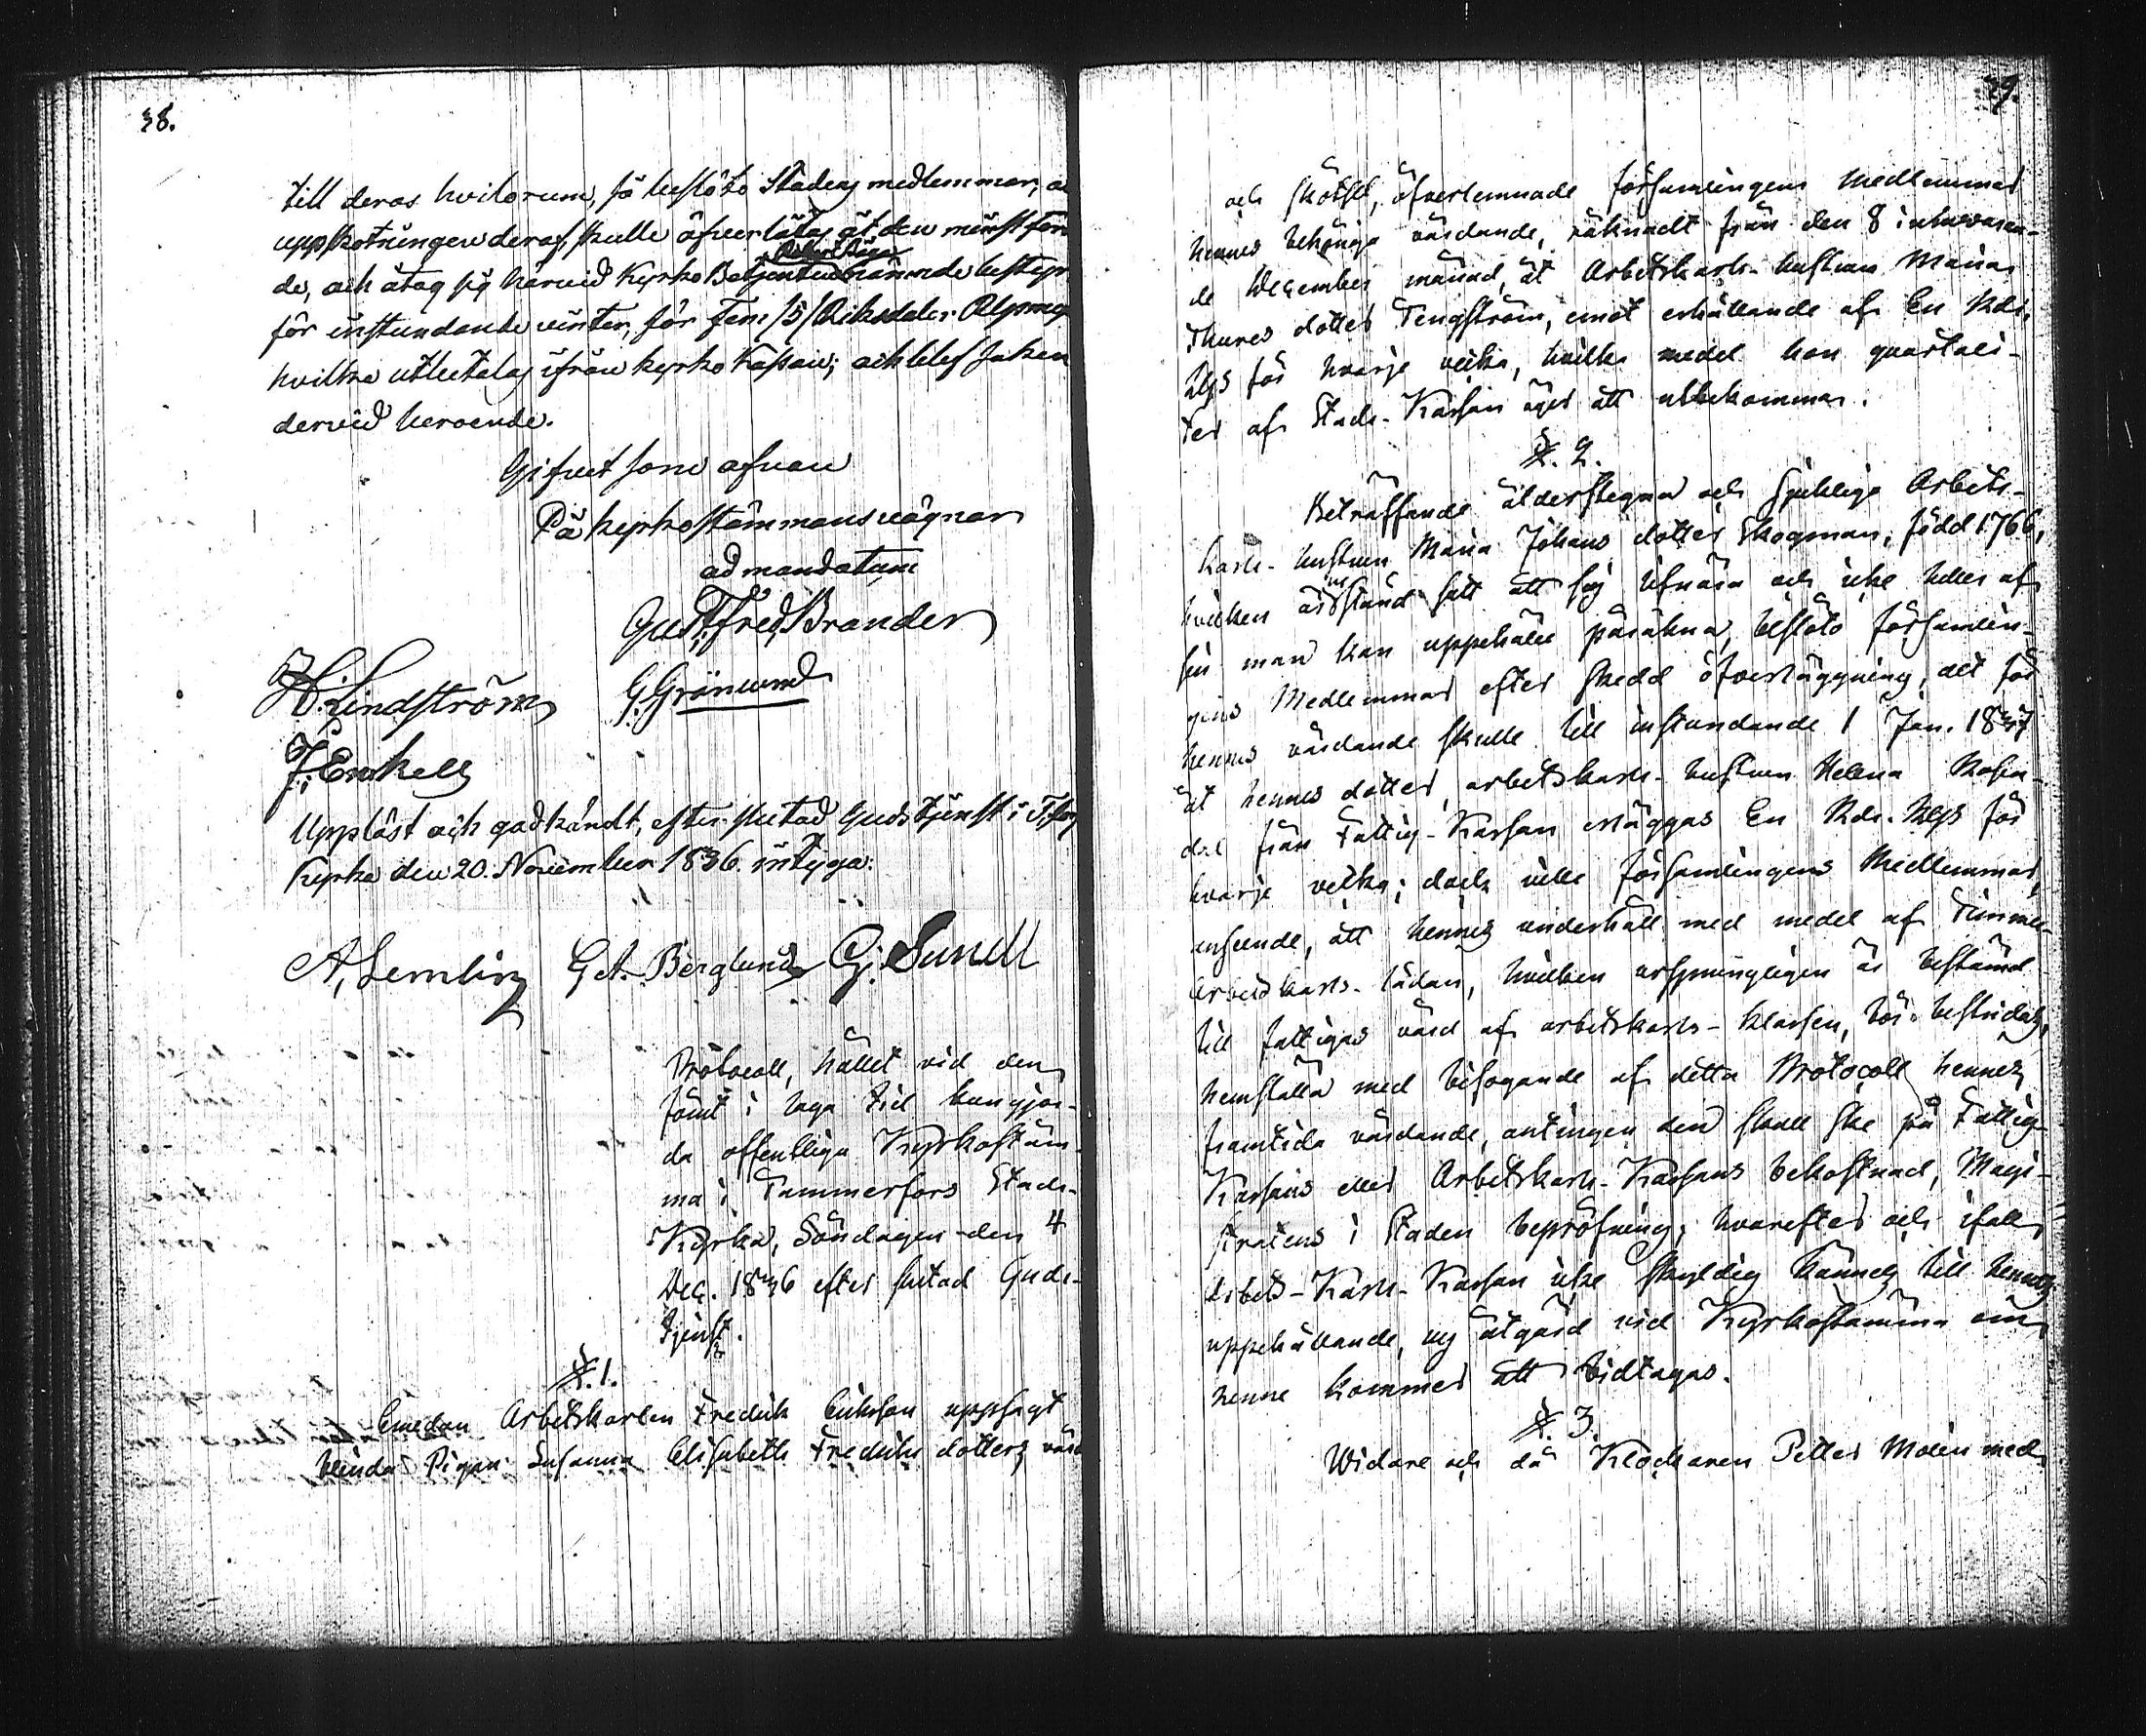 38.
till deras hvilorum, så beslöto Stadens medlemmar, a
uppskotningen deraf skulle öfverlåtas åt den minstfor
de, och åtog sig härvid Kyrko Betjenten nämnde bestyr
för instundande vinter, för Fem /5/ Riksdaler Rgsmg
hvilka utbetalas ifrån kyrko Kassan; och blef saken
dervid beroende.
Gifvet som ofvan
På kyrkostämmans vägnar
ad mandatum
Gust. Fred. Brander
H. Lindström G. Grönlund
J. Enkell
Uppläst och godkändt, efter slutad Gudstjenst i T:fors
Kyrka den 20. November 1836. intyga:
A. Lemling Get. Berglund G. Sundell
Protocoll, hållet vid den
sömt i laga tid kungjor-
da offentliga Kyrkostäm-
ma i Tammerfors Stads-
Kyrka, Söndagen den 4
Dec. 1836 efter slutad Guds-
tjenst.
§. 1.
Emedan Arbetskarlen Fredrik Eriksson uppsagt
blinda Pigan Susanna Elisabeth Fredriks dotters vård
39.
och skötsel, öfverlemnade församlingens medlemmar
hennes behöriga vårdande, räknadt från den 8 innevaran-
de December månad, åt Arbetskarls-hustrun Maria
Thures dotter Tengström, emot erhållande af En Rdr.
Rgs för hvarje vecka, hvilka medel hon qvartali-
ter af Stads-Kassan äger att utbekomma.
§. 2.
Beträffande ålderstegna och sjukliga Arbets-
karls-hustrun Maria Johans dotter Skogman, född 1766,
hvilken är ur stånd satt att sig lifnära och icke heller af
sin man kan uppehälle påräkna, beslöto församlin-
gens Medlemmar efter skedd öfverläggning, att för
hennes vårdande skulle till instundande 1 Jan. 1837
åt hennes dotter, arbetskarls-hustrun Helena Rosen-
dal från Fattig-Kassan erläggas En Rdr. Rgs för
hvarje vecka; dock ville församlingens Medlemmar,
anseende, att hennes underhåll med medel af Timmer
Arbetskarls-lådan, hvilken ursprungligen är bestämd
till fattigas vård af arbetskarls-klassen, bör bestridas,
hemställa med bifogande af detta Protocoll hennes
framtida vårdande, antingen den skall ske på Fattig-
Kassans eller Arbetskarls-Kassans bekostnad, Magi-
stratens i Staden bepröfning; hvarefter och ifall
Arbets-Karls-Kassan icke skyldig kännes till hennes
uppehållande, ny åtgärd vid Kyrkostämma om
henne kommer att vidtagas.
§. 3.
Widare och då Klockaren Petter Molin med